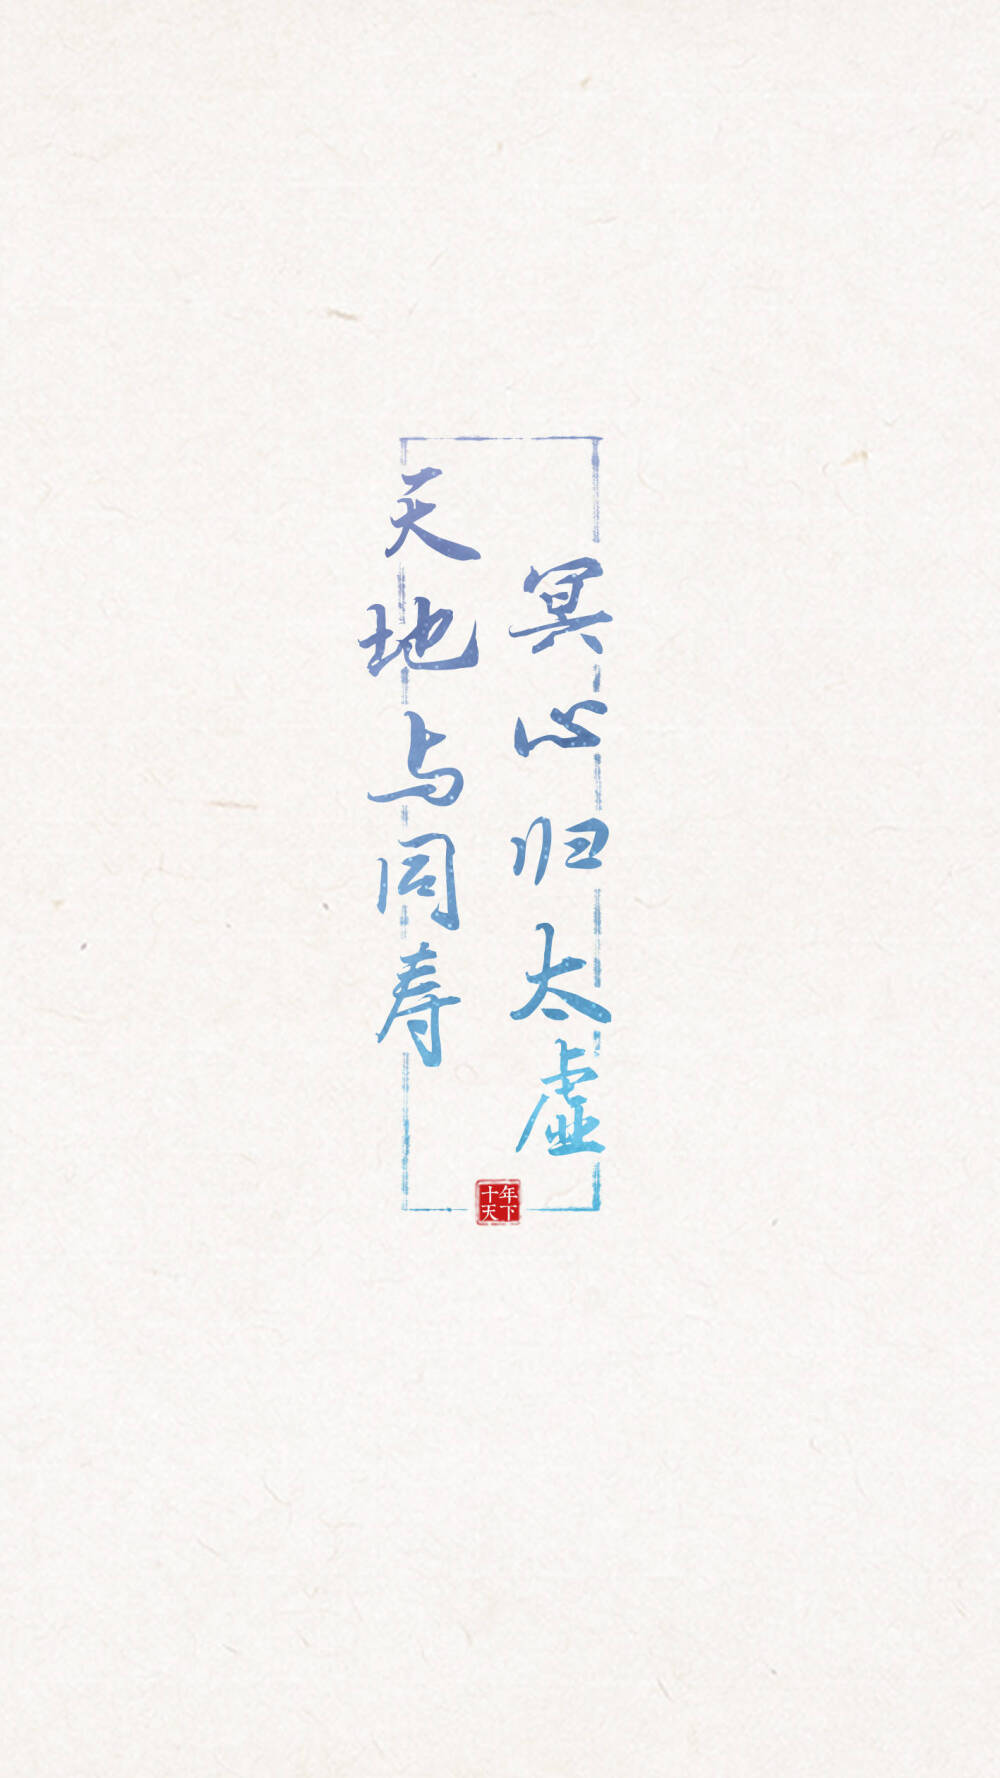 冥心归太虚
天地与同寿
十年
天下